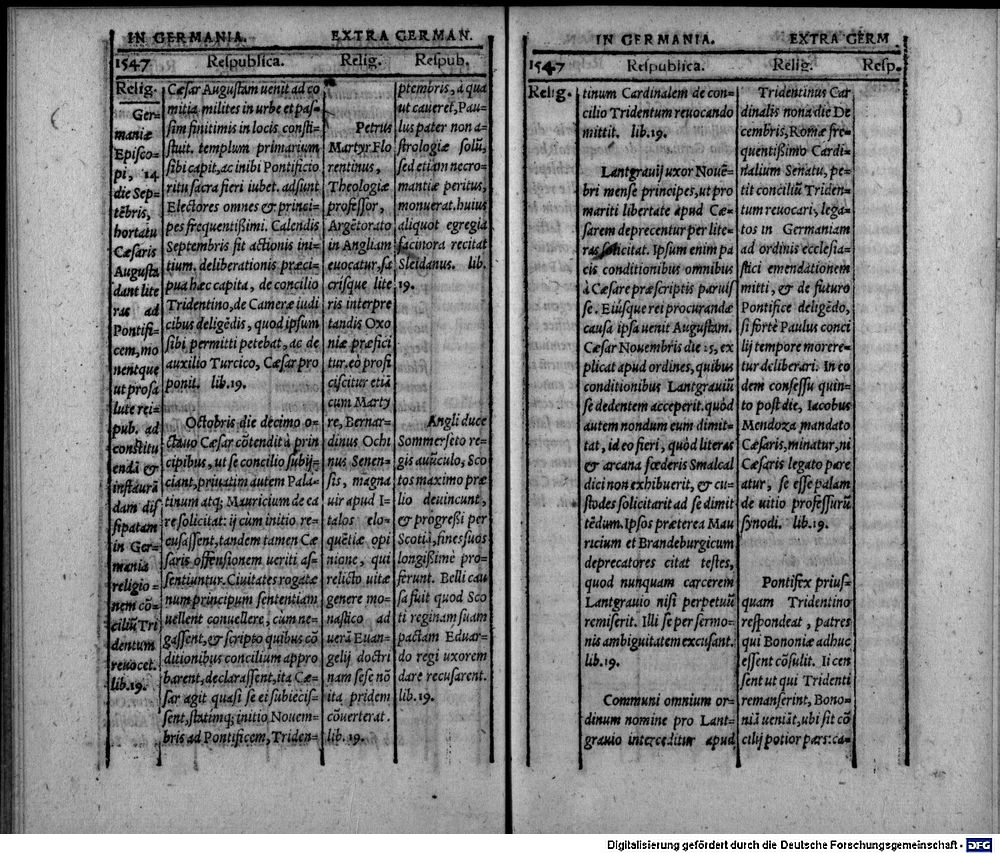 IN GERMANIA. EXTRA GERMAN.
1547 Reſpublica. Relig. Reſpub.
Relig.
Ger-
maniæ
Epiſco-
pi, 14
die Sep-
tẽbris,
hortatu
Cæſaris
Auguſta
dant lite
ras ad
Pontifi-
cem, mo
nentque
ut pro ſa
lute rei-
pub. ad
conſtitu
endã &
inſtaurã
dam diſ
ſipatam
in Ger-
mania
religio-
nem cõ-
ciliũ Tri
dentum
reuocet.
lib. 19.
Cæſar Auguſtam uenit ad co
mitia, milites in urbe et paſ-
ſim finitimis in locis conſti-
ſtuit. templum primarium
ſibi capit, ac inibi Pontificio
ritu ſacra fieri iubet. adſunt
Electores omnes & princi-
pes frequentißimi. Calendis
Septembris fit actionis ini-
tium. deliberationis præci-
pua hæc capita, de concilio
Tridentino, de Cameræ iudi
cibus deligẽdis, quod ipſum
ſibi permitti petebat, ac de
auxilio Turcico, Cæſar pro
ponit. lib. 19.
Octobris die decimo o-
ctauo Cæſar cõtendit à prin
cipibus, ut ſe concilio ſubij-
ciant, priuatim autem Pala-
tinum atq; Mauricium de ea
re ſolicitat: ij cùm initio re-
cuſaſſent, tandem tamen Cæ
ſaris offenſionem ueriti aſ-
ſentiuntur. Ciuitates rogatæ
num principum ſententiam
uellent conuellere, cùm ne-
gaſſent, & ſcripto quibus cõ
ditionibus concilium appro
barent, declaraſſent, ita Cæ-
ſar agit quaſi ſe ei ſubieciſ-
ſent, ſtatimq; initio Nouem-
bris ad Pontificem, Triden-
Petrus
Martyr Flo
rentinus,
Theologiæ
profeſſor,
Argẽtorato
in Angliam
euocatur, ſa
criſque lite
ris interpre
tandis Oxo
niæ præfici
tur. eò profi
ciſcitur etiã
cum Marty
re, Bernar-
dinus Ochi
nus Senen-
ſis, magna
uir apud I-
talos elo-
quẽtiæ opi
nione, qui
relicto uitæ
genere mo-
naſtico ad
uerã Euan-
gelij doctri
nam ſeſe nõ
ita pridem
cõuerterat.
lib. 19.
ptembris, à qua
ut caueret, Pau-
lus pater non a-
ſtrologiæ ſolũ,
ſed etiam necro-
mantiæ peritus,
monuerat. huius
aliquot egregia
facinora recitat
Sleidanus. lib.
19.
Angli duce
Sommerſeto re-
gis auũculo, Sco
tos maximo præ
lio deuincunt,
& progreßi per
Scotiã, fines ſuos
longißimè pro-
ferunt. Belli cau
ſa fuit quod Sco
ti reginam ſuam
pactam Eduar-
do regi uxorem
dare recuſarent.
lib. 19.
IN GERMANIA. EXTRA GERM
1547 Reſpublica. Relig. Reſp.
Relig.
tinum Cardinalem de con-
cilio Tridentum reuocando
mittit. lib. 19.
Lantgrauij uxor Nouẽ-
bri menſe principes, ut pro
mariti libertate apud Cæ-
ſarem deprecentur per lite-
ras ſolicitat. Ipſum enim pa
cis conditionibus omnibus
à Cæſare præſcriptis paruiſ
ſe. Eiúſque rei procurandæ
cauſa ipſa uenit Auguſtam.
Cæſar Nouembris die 15, ex
plicat apud ordines, quibus
conditionibus Lantgrauiũ
ſe dedentem acceperit. quòd
autem nondum eum dimit-
tat, id eo fieri, quòd literas
& arcana fœderis Smalcal
dici non exhibuerit, & cu-
ſtodes ſolicitarit ad ſe dimit
tẽdum. Ipſos præterea Mau
ricium et Brandeburgicum
deprecatores citat teſtes,
quod nunquam carcerem
Lantgrauio niſi perpetuũ
remiſerit. Illi ſe per ſermo-
nis ambiguitatem excuſant.
lib. 19.
Communi omnium or-
dinum nomine pro Lant-
grauio interceditur apud
Tridentinus Car
dinalis nona die De
cembris, Romæ fre-
quentißimo Cardi-
nalium Senatu, pe-
tit conciliũ Triden-
tum reuocari, lega-
tos in Germaniam
ad ordinis eccleſia-
ſtici emendationem
mitti, & de futuro
Pontifice deligẽdo,
ſi fortè Paulus conci
lij tempore morere-
tur deliberari. In eo
dem conſeſſu quin-
to poſt die, Iacobus
Mendoza mandato
Cæſaris, minatur, ni
Cæſaris legato pare
atur, ſe eſſe palam
de uitio profeſſurũ
ſynodi. lib. 19.
Pontifex priuſ-
quam Tridentino
reſpondeat, patres
qui Bononiæ adhuc
eſſent cõſulit. Ii cen
ſent ut qui Tridenti
remanſerint, Bono-
niã ueniãt, ubi ſit cõ
cilij potior pars: ca-
Digitalisierung gefördert durch die Deutsche Forschungsgemeinschaft - DFG